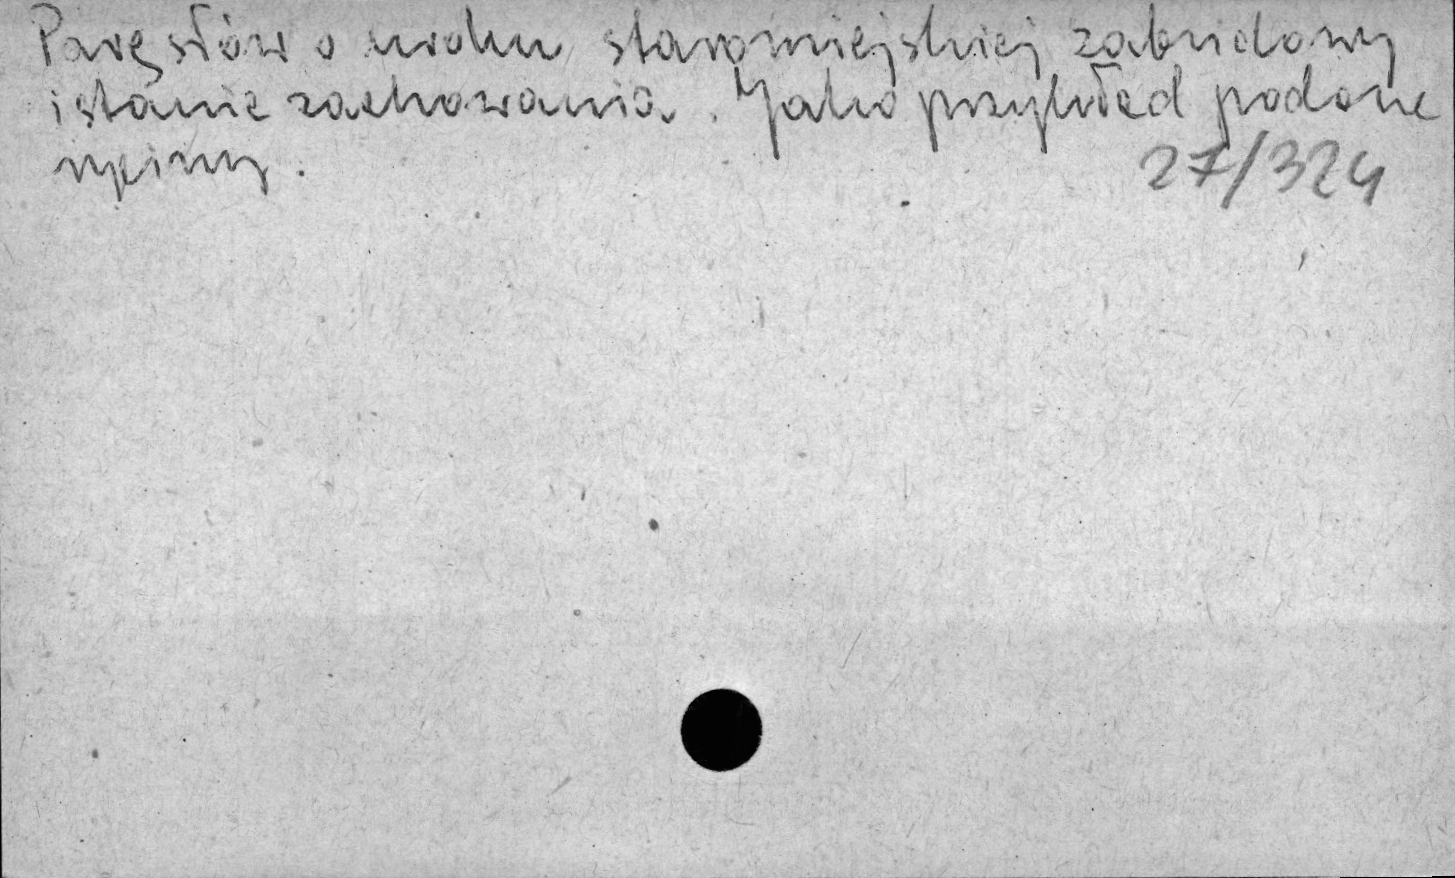 Parę słów o uroku staromiejskiej zabudowy
i stanie zachowania. Jako przykład podane
27/324